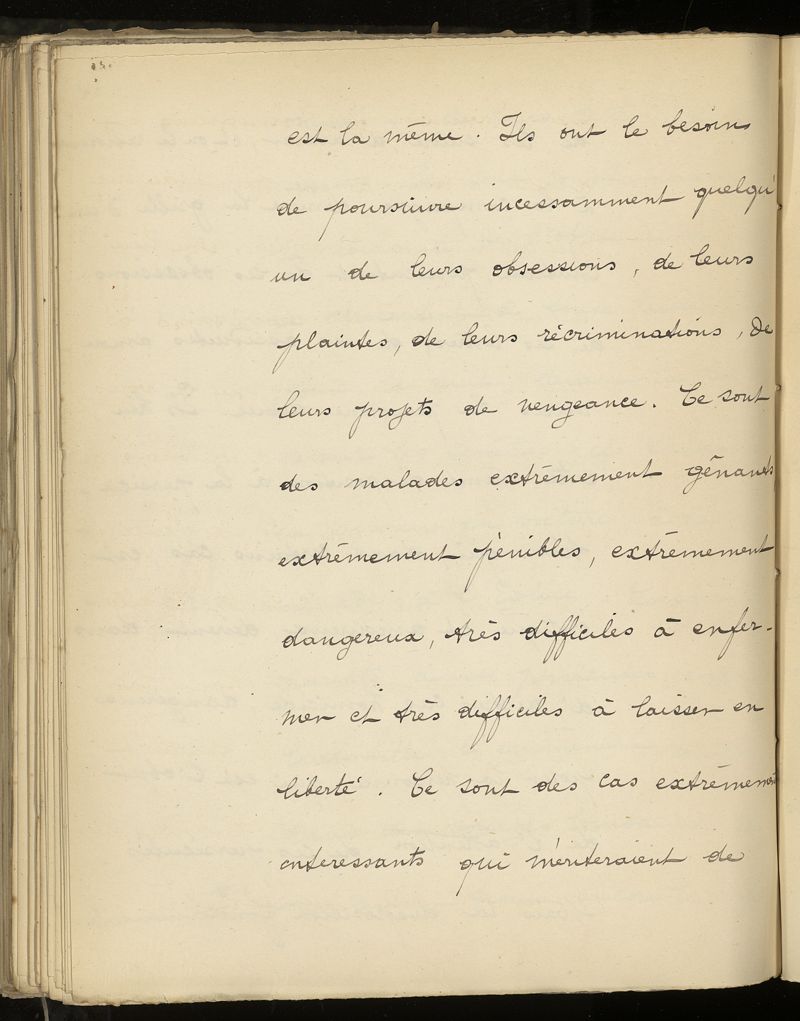 est la même. Ils ont le besoin
de poursuivre incessamment quelqu'
un de leurs obsessions, de leurs
plaintes, de leurs récriminations, de
leurs projets de vengeance. Ce sont
des malades extrêmement gênants
extrêmement pénibles, extrêmement
dangereux, très difficiles à enfer-
mer et très difficiles à laisser en
liberté. Ce sont des cas extrêmement
interessants qui mériteraient de